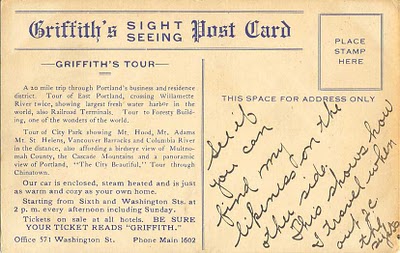 Griffith's SIGHT SEEING Post Card
PLACE
STAMP
HERE
GRIFFITH'S TOUR
A 20 mile trip through Portland's business and residence
district. Tour of East Portland, crossing Willamette
River twice, showing largest fresh water harbor in the
world, also Railroad Terminals. Tour to Forestry Build-
ing, one of the wonders of the world.
Tour of City Park showing Mt. Hood, Mt. Adams
Mt. St Helens, Vancouver Barracks and Columbia River
in the distance, also affording a birdseye view of Multno-
mah County, the Cascade Mountains and a panoramic
view of Portland, "The City Beautiful," Tour through
Chinatown.
Our car is enclosed, steam heated and is just
as warm and cozy as your own home.
Starting from Sixth and Washington Sts. at
2 p. m. every afternoon including Sunday.
Tickets on sale at all hotels. BE SURE
YOUR TICKET READS "GRIFFITH."
Office 571 Washington St. Phone Main 1602
THIS SPACE FOR ADDRESS ONLY
See if
you can
find my
likeness on the
other side
This shows how
I travel when
out
the
sights